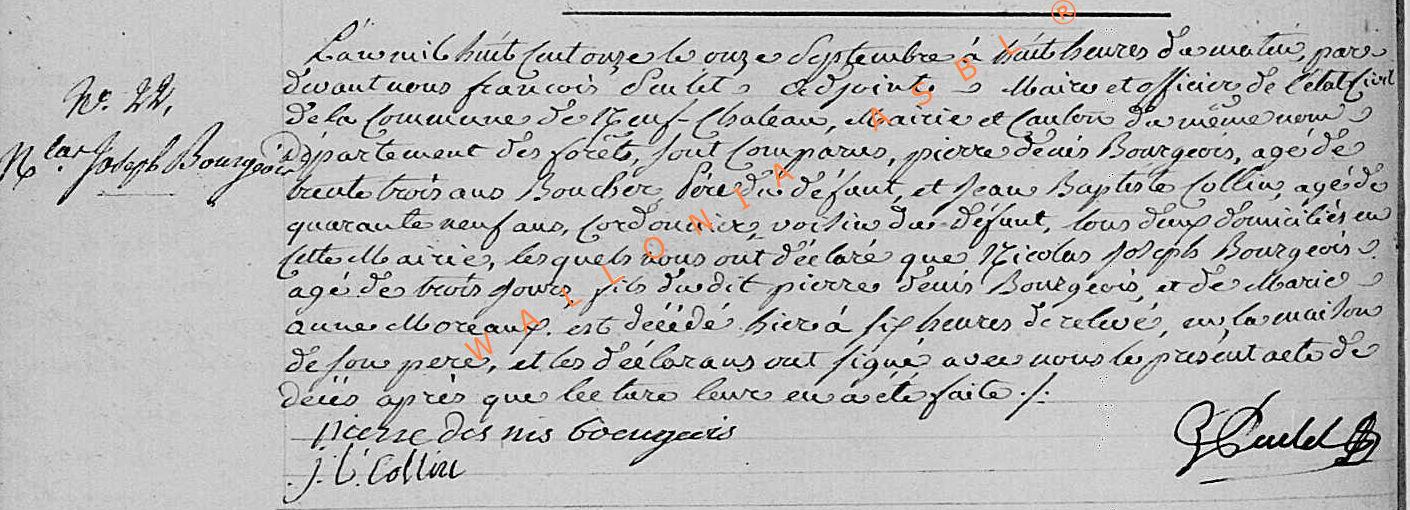 L'an mil huit cent onze le onze Septembre à huit heures du matin, par
devant nous françois adjoint Maire et officier de l'état Civil
de la Commune de Neuf-Chateau, Mairie et Canton du même nom
Département des forêts, sont comparus, pierre denis Bourgeois, agé de
trente trois ans Boucher, Père du défunt, et Jean Baptiste Collin, agé de
N.º 22,
N.las Joseph Bourgeois
quarante neuf ans, Cordonnier, voisin du défunt, tous deux domiciliés en
Cette Mairie, lesquels nous ont déclaré que Nicolas Joseph Bourgeois
agé de trois jours, fils du dit pierre denis Bourgeois, et de Marie
anne Moreaux. est décédé hier à six heures de relevé, en la maison
de son pere, et les déclarans ont signé avec nous le présent acte de
décès après que lecture leur en a été faite ./.
pierre des nis bourgeois
j. b. Collin
WALLONIA ASBL ®